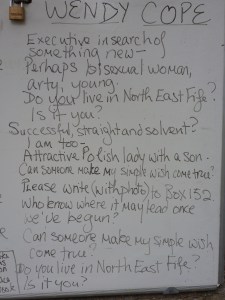 WENDY COPE
Executive in search of
something new —
Perhaps bisexual woman,
arty, young.
Do you live in North East Fife?
Is it you?
Successful, straight and solvent?
I am too —
Attractive Polish lady with a son.
Can someone make my simple wish come true?
Please write (with photo) to Box 152
Who knows where it may lead once
we've begun?
Can someone make my simple wish
come true?
Do you live in North East Fife?
Is it you?